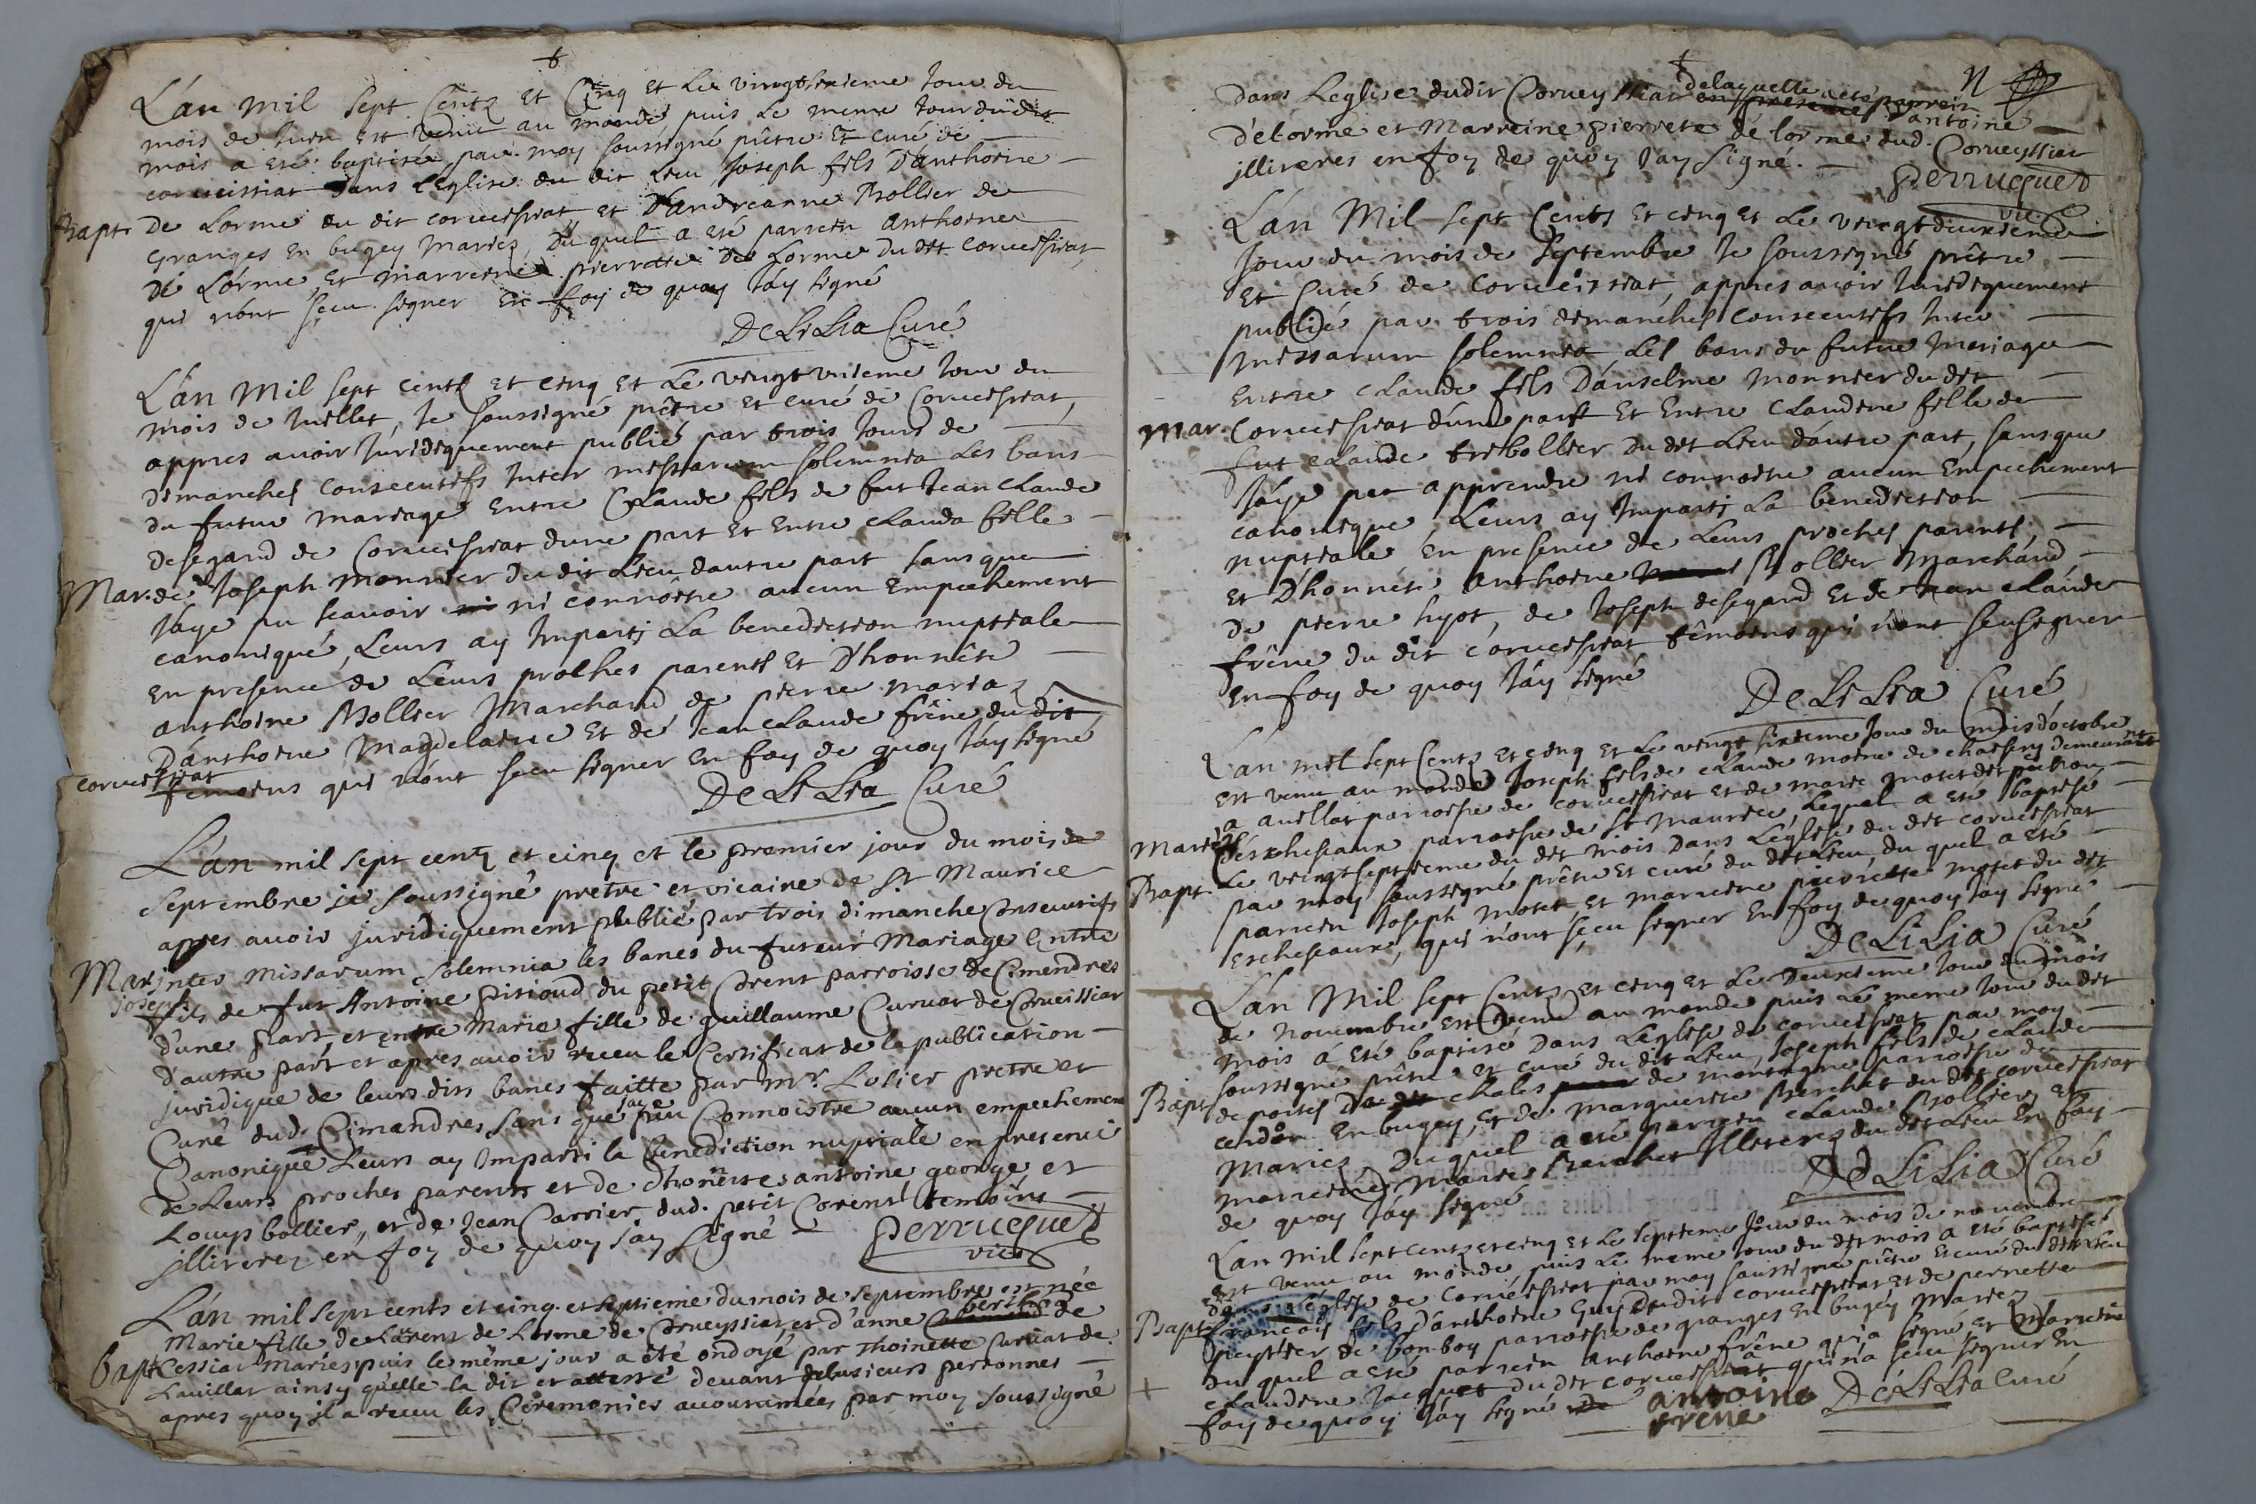 L'an mil sept Centz et Cinq et Le vingtsixieme Jour du
mois de Juin est venu au monde puis Le meme Jour dudit
mois a eté baptisé par moy soussigné pêtre et curé de
corveissiat dans L'Eglise du dit Lieu Joseph fils D'anthoine
Bapt. De Lorme du dit corveissiat, et D'andreanne Bollier de
Granges en bugey Mariez, Du quel a eté parrein anthoine
De Lorme, Et marreine pierrette De Lorme du dit corveissiat,
qui n'ont sceu signer En foy de quoy J'ay signé
De Lilia Curé
L'an Mil sept centz et cinq et Le vingt unieme Jour du
mois de Juillet, Je soussigné prêtre et curé de Corveissiat,
appres avoir Juridiquement publié par trois Jours de
dimanches consecutifs Inter missarum solemnia Les bans
du futur mariage Entre Claude fils de fut Jean Claude
Desegard de Corveissiat d'une part et Entre Clauda fille
Mar. de Joseph Monnier du dit Lieu dautre part sans que
J'aye pu scavoir ni connoître aucun Empechement
canonique, Leurs ay Imparti La benediction nuptiale
En presence de Leurs proches parents et D'honnête
anthoine Bollier Marchand de pierre mariaz
D'anthoine Magdelaine et de Jean Claude frêne du dit
corveissiat
temoins qui n'ont sceu signer en foy de quoy J'ay signé
De Lilia Curé
L'an mil sept centz et cinq et le premier jour du mois de
septembre je soussigné pretre et vicaire de St Maurice
apres avoir juridiquement publié par trois dimanche Consecutifs
Mar. inter missarum solemnia les banes du futeur Mariage Entre
joseph
fils de fut Antoine pitioud du petit Corent parroisse de Cimendres
d'une part, et entre Marie fille de guillaume Curvat de Corveissiat
d'autre part et apres avoir receu le Certificat de la publication
juridique de leurs dits banes faitte par mr. Losier pretre et
Curé dud. Cimandres sans que j'aye pu Connoistre aucun empechement
Canonique Leurs ay Imparti la benediction nuptiale en presence
de Leurs proches parents et de d'honêttes antoine, george, et
Louys bollier, et de Jean Carrier dud. petit Corent temoins
illiterez en foy de quoy j'ay signé
Perrucquet
vic.
L'an mil sept cents et cinq et septieme du mois de septembre est née
Marie fille de Lorent de Lorme de Corveyssiat, et d'anne berthet de
Bapt. Cessiat Mariés, puis le même jour a été ondoyé par Thoinette Curvat de
Lavillat ainsy qu'elle la dit et attesté devant plusieurs personnes
apres quoy il a receu les Ceremonies accoutumées par moy soussigné
dans Leglise dudit Corveyssiat delaquelle a eté parrein
en presence d'antoine
delorme et Marreine pierrete de lorme dud. Corveyssiat
illiteres en foy de quoy j'ay signe.
Perrucquet
vic.
L'an Mil sept Cents et cinq et Le vingt deuxieme
Jour du mois de septembre Je soussigné prêtre
et Curé de Corveissiat, appres avoir Juridiquement
publié par trois dimanches consecutifs Inter
missarum solemnia Les bans du futur Mariage
Entre Claude fils D'anselme Monnier du dit
Mar. Corveissiat d'une part Et Entre Claudine fille de
fut Claude trebollier du dit Lieu d'autre part, sans que
J'aye peu apprendre ni connoitre aucun Empechement
canonique, Leurs ay Imparti La benediction
nuptiale En presence de Leurs proches parents
et D'honnête anthoine Bollier Marchand
De pierre hyot, de Joseph desegard Et de Jean Claude
frêne du dit corveissiat têmoins qui n'ont sceu signer
En foy de quoy J'ay signé
De Lilia Curé
L'an mil sept Centz et cinq et Le vingt sixieme Jour du mois d'octobre
Est venu au monde Joseph fils de Claude moine de chaesery demeurant
a avillat parroisse de corveissiat et de marie motet
Mariés
d'Escheseaux parroisse de St Maurice, Lequel a eté baptisé
Le vingt septieme du dit mois Dans L'eglise du dit corveissiat
Bapt. par moy soussigné prêtre et curé du dit Lieu, du quel a eté
parrein Joseph Motet et marreine pierrette Motet du dit
Escheseaux, qui n'ont sceu signer En foy de quoy J'ay signé
De Lilia Curé
L'an Mil sept Centz et cinq et Le Deuxieme Jour du mois
de Novembre est venu au monde puis Le meme Jour du dit
mois á eté baptisé Dans L'eglise de corveissiat par moy
soussigné prêtre et curé du dit Lieu, Joseph fils de Claude
Bapt. de poises chales de montagne parroisse de
cerdon En bugey, et de Marguerite Berchet du dit corveissiat
Mariez, Duquel a eté parrein Claude Bollier, Et
marreine Marie Berchet Illiterez du dit Lieu En foy
de quoy J'ay signé
De Lilia Curé
L'an mil sept centz et cinq et Le septieme Jour du mois de novembre
est venu au monde puis Le meme Jour du dit mois a eté baptisé
dans L'eglise de Corveissiat par moy soussigné pêtre et curé du dit Lieu
Bapt. francois fils D'anthoine Guy Dudit corveissiat, et de pernette
peyssier de bonboy parroisse de granges En bugey Mariez
Du quel a eté parrein anthoine frêne qui a signé, et Marreine
Claudine Jacquet du dit corveissiat qui n'a sceu signer En
foy de quoy J'ay signé
antoine
frene
De Lilia Curé